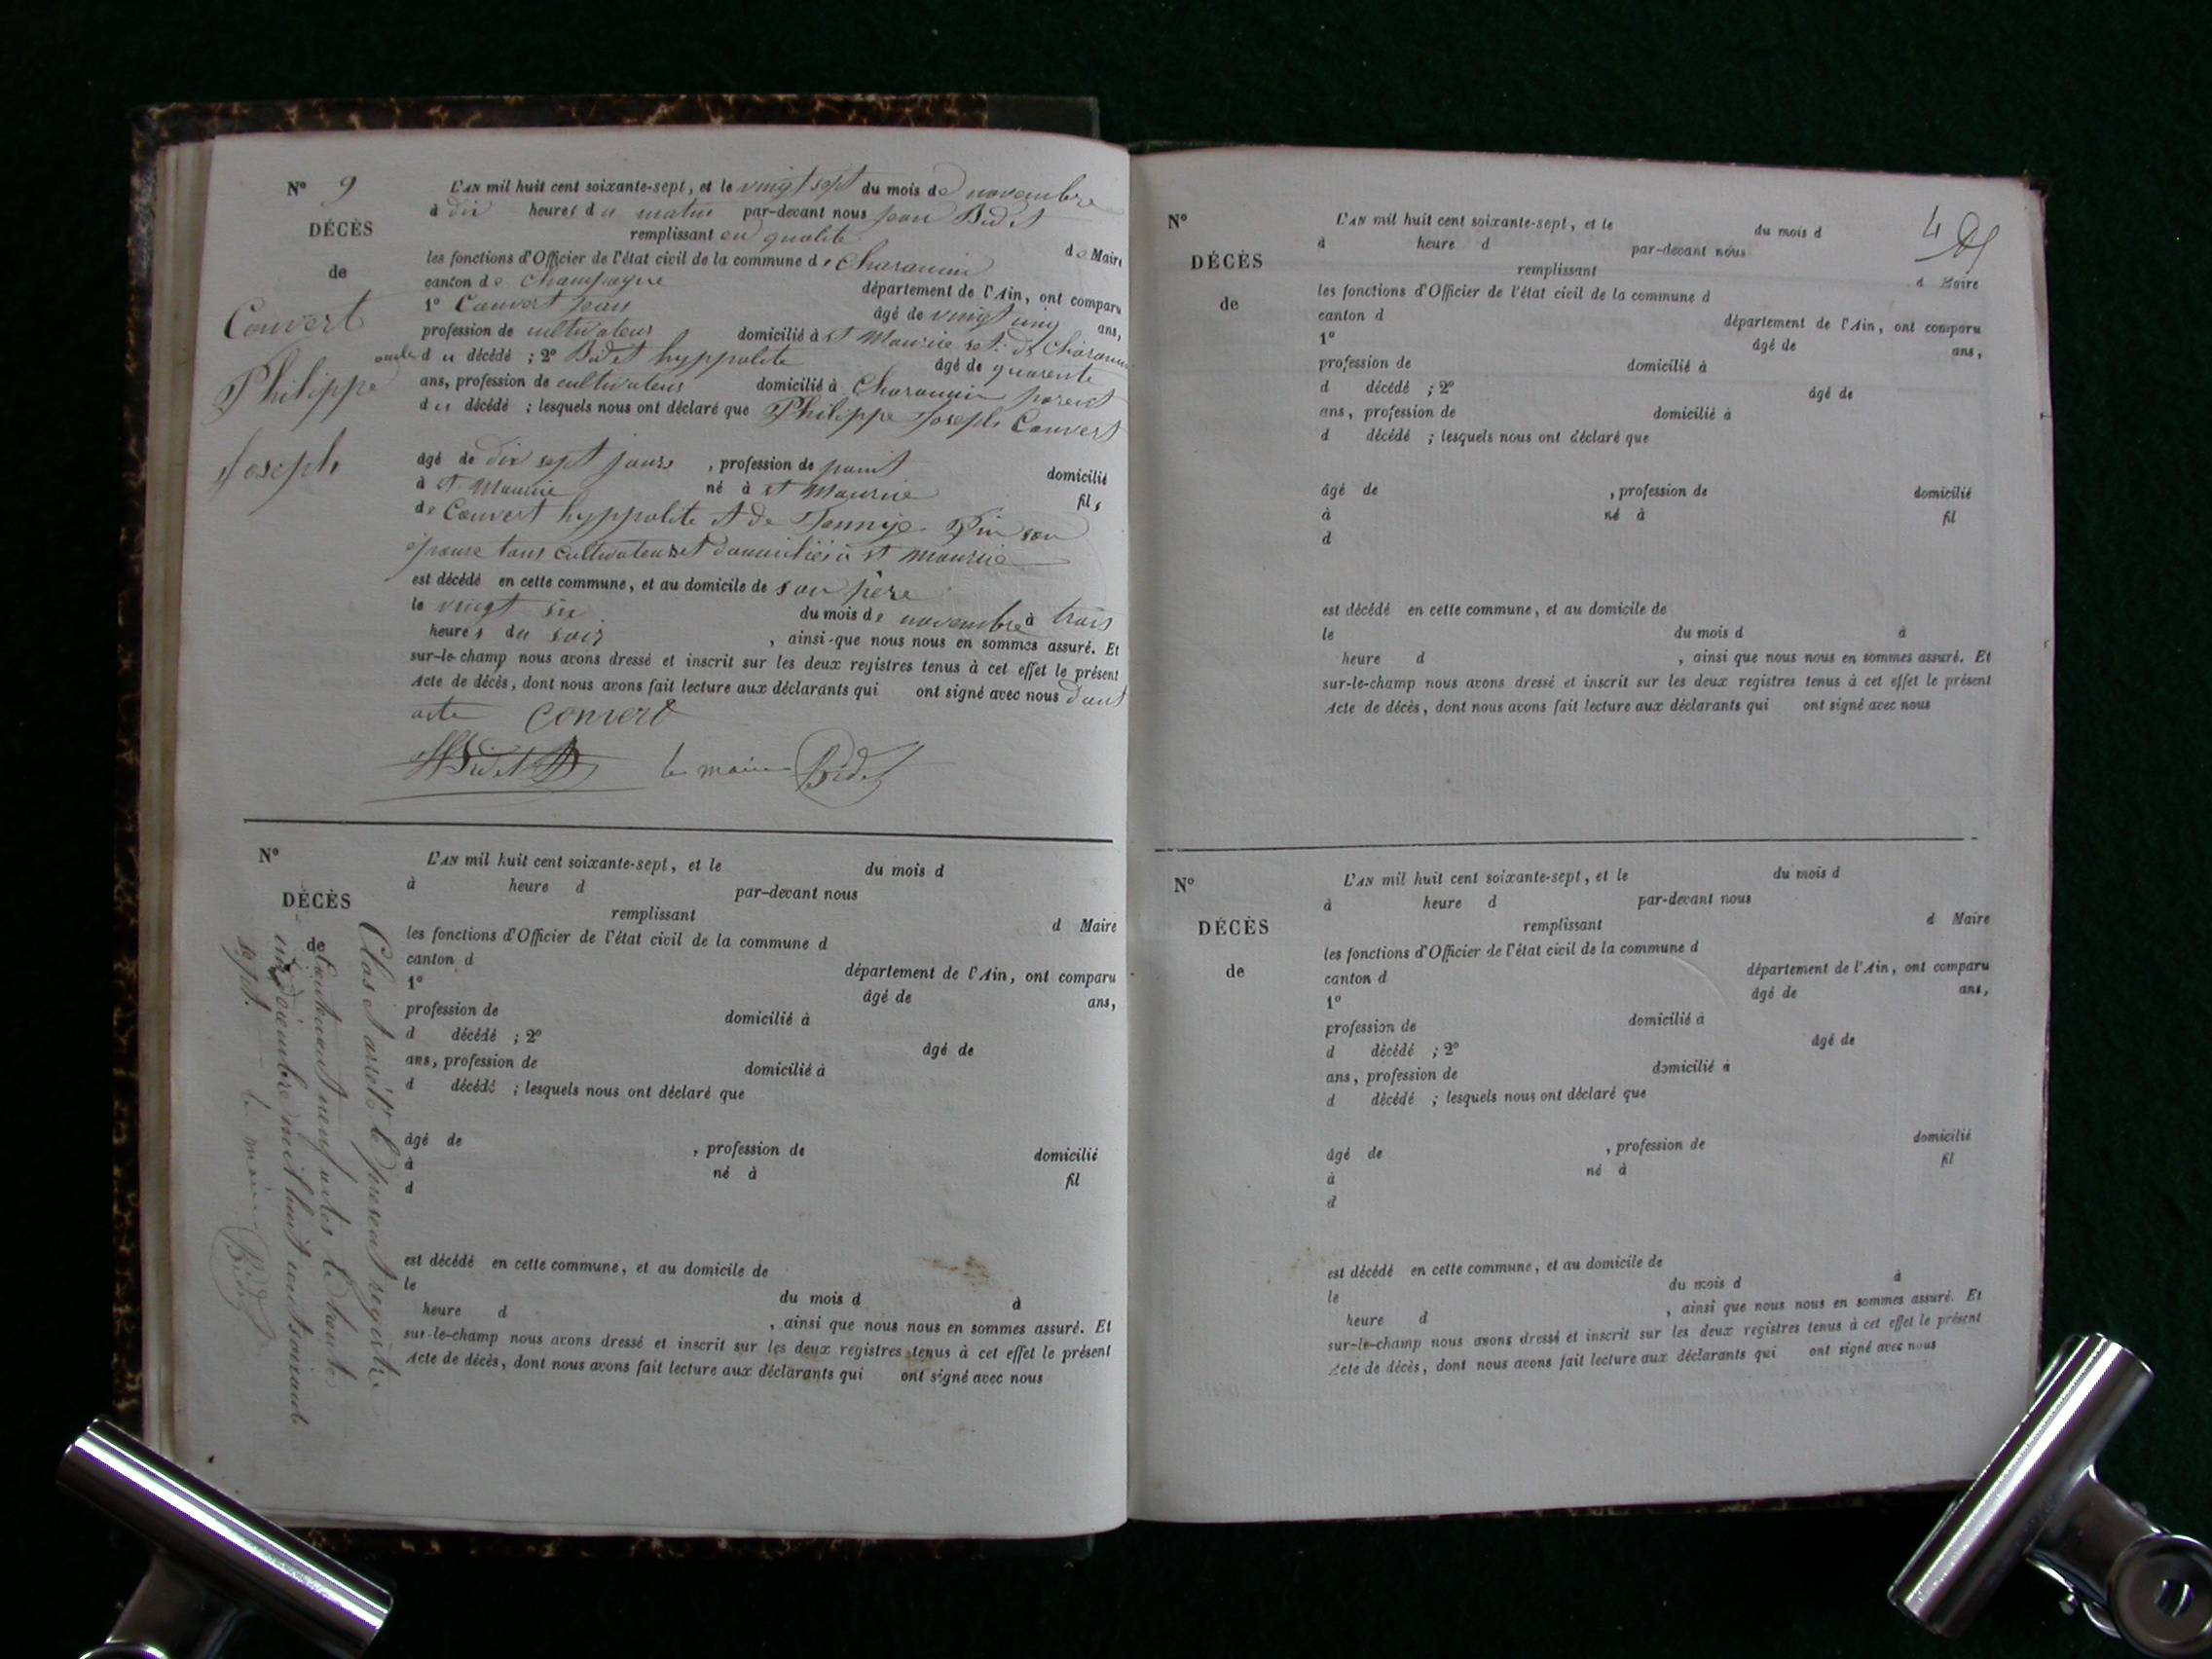 N° 9
DÉCÈS
de
Convert
Philippe
Joseph
L'AN mil huit cent soixante-sept, et le vingt sept du mois de novembre
à dix heures du matin par-devant nous Jean Bidet
remplissant en qualité de Maire
les fonctions d'Officier de l'état civil de la commune de Charancin
canton de Champagne département de l'Ain, ont comparu
1° Convert Jean âgé de vingt cinq ans,
profession de cultivateur domicilié à St Maurice de Charancin
oncle du décédé ; 2° Bidet hyppolite âgé de quarente
ans, profession de cultivateur domicilié à Charancin parent
du décédé ; lesquels nous ont déclaré que Philippe Joseph Convert
âgé de dix sept jours , profession de domicilié
à St Maurice né à St Maurice fils
de Convert hyppolite et de Pin son
épouse tous cultivateurs et domiciliés à St Maurice
est décédé en cette commune, et au domicile de son père
le vingt six du mois de novembre à trois
heures du soir , ainsi que nous nous en sommes assuré. Et
sur-le-champ nous avons dressé et inscrit sur les deux registres tenus à cet effet le présent
Acte de décès, dont nous avons fait lecture aux déclarants qui ont signé avec nous dont
acte Convert
HBidet le maire Bidet
N°
DÉCÈS
de
Clos et arrêté le présent registre
contenant neuf actes le trente
un décembre mil huit cent soixante
sept. le maire Bidet
L'AN mil huit cent soixante-sept, et le du mois d
à heure d par-devant nous
remplissant d Maire
les fonctions d'Officier de l'état civil de la commune d
canton d département de l'Ain, ont comparu
1° âgé de ans,
profession de domicilié à
d décédé ; 2° âgé de
ans, profession de domicilié à
d décédé ; lesquels nous ont déclaré que
âgé de , profession de domicilié
à né à fil
d
est décédé en cette commune, et au domicile de
le du mois d à
heure d , ainsi que nous nous en sommes assuré. Et
sur-le-champ nous avons dressé et inscrit sur les deux registres tenus à cet effet le présent
Acte de décès, dont nous avons fait lecture aux déclarants qui ont signé avec nous
4
N°
DÉCÈS
de
L'AN mil huit cent soixante-sept, et le du mois d
à heure d par-devant nous
remplissant d Maire
les fonctions d'Officier de l'état civil de la commune d
canton d département de l'Ain, ont comparu
1° âgé de ans,
profession de domicilié à
d décédé ; 2° âgé de
ans, profession de domicilié à
d décédé ; lesquels nous ont déclaré que
âgé de , profession de domicilié
à né à fil
d
est décédé en cette commune, et au domicile de
le du mois d à
heure d , ainsi que nous nous en sommes assuré. Et
sur-le-champ nous avons dressé et inscrit sur les deux registres tenus à cet effet le présent
Acte de décès, dont nous avons fait lecture aux déclarants qui ont signé avec nous
N°
DÉCÈS
de
L'AN mil huit cent soixante-sept, et le du mois d
à heure d par-devant nous
remplissant d Maire
les fonctions d'Officier de l'état civil de la commune d
canton d département de l'Ain, ont comparu
1° âgé de ans,
profession de domicilié à
d décédé ; 2° âgé de
ans, profession de domicilié à
d décédé ; lesquels nous ont déclaré que
âgé de , profession de domicilié
à né à fil
d
est décédé en cette commune, et au domicile de
le du mois d à
heure d , ainsi que nous nous en sommes assuré. Et
sur-le-champ nous avons dressé et inscrit sur les deux registres tenus à cet effet le présent
Acte de décès, dont nous avons fait lecture aux déclarants qui ont signé avec nous